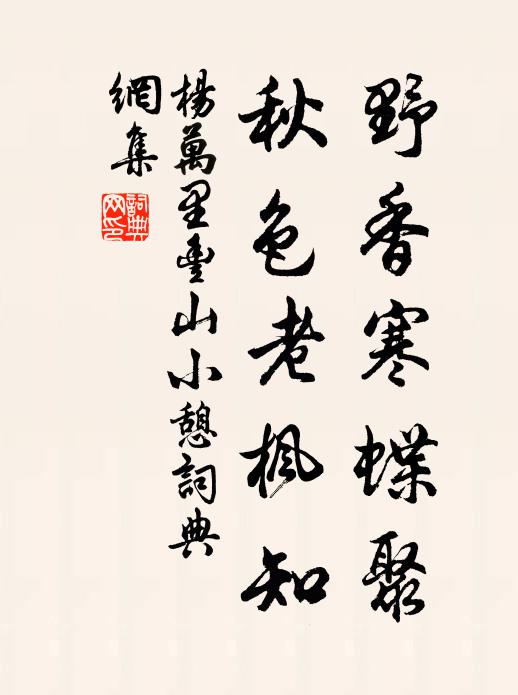 野香寒蝶聚
秋色老楓知
楊萬里靈山小憩詞典
網集
詞典網印